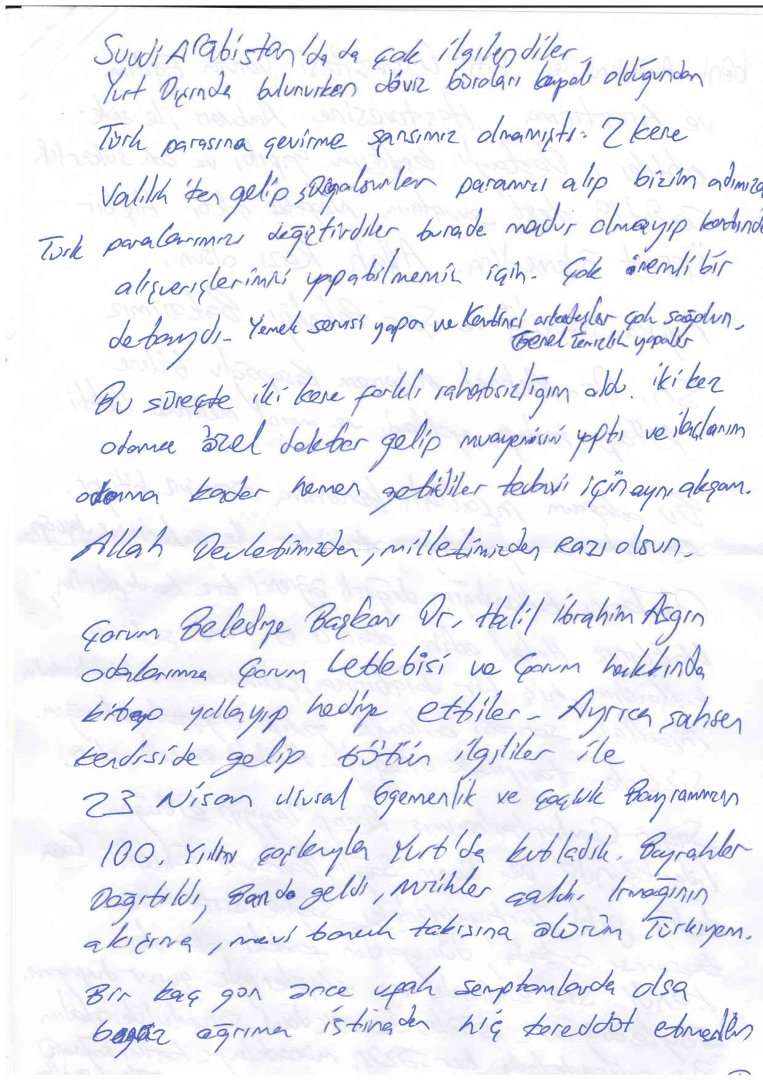 Suudi Arabistan'da da çok ilgilendiler.
Yurt Dışında bulunurken döviz büroları kapalı olduğundan
Türk parasına çevirme şansımız olmamıştı. 2 kere
Valilik'ten gelip, sağolsunlar paramızı alıp bizim adımıza
Türk paralarımızı değiştirdiler burada mağdur olmayıp kantinde
alışverişlerimizi yapabilmemiz için. Çok önemli bir
detaydı. Yemek servisi yapan ve Kantinci arkadaşlar çok sağolsun.
Genel Temizlik yapanlar
Bu süreçte iki kere farklı rahatsızlığım oldu. iki kez
odama özel doktor gelip muayenesini yaptı ve ilaçlarım
odama kadar hemen getirdiler tedavi için aynı akşam.
Allah Devletimizden, milletimizden razı olsun.
Çorum Belediye Başkanı Dr. Halil İbrahim Aşgın
odalarımıza Çorum Leblebisi ve Çorum hakkında
kitap yollayıp hediye ettiler. Ayrıca şahsen
kendiside gelip bütün ilgililer ile
23 Nisan Ulusal Egemenlik ve Çocuk Bayramının
100. Yılını coşkuyla Yurt'da kutladık. Bayraklar
Dağıtıldı, Bando geldi, müzikler çaldı. Irmağının
akışına, mavi boncuk takısına ölürüm Türkiyem.
Bir kaç gün önce ufak semptomlarda olsa
boğaz ağrıma istinaden hiç tereddüt etmeden